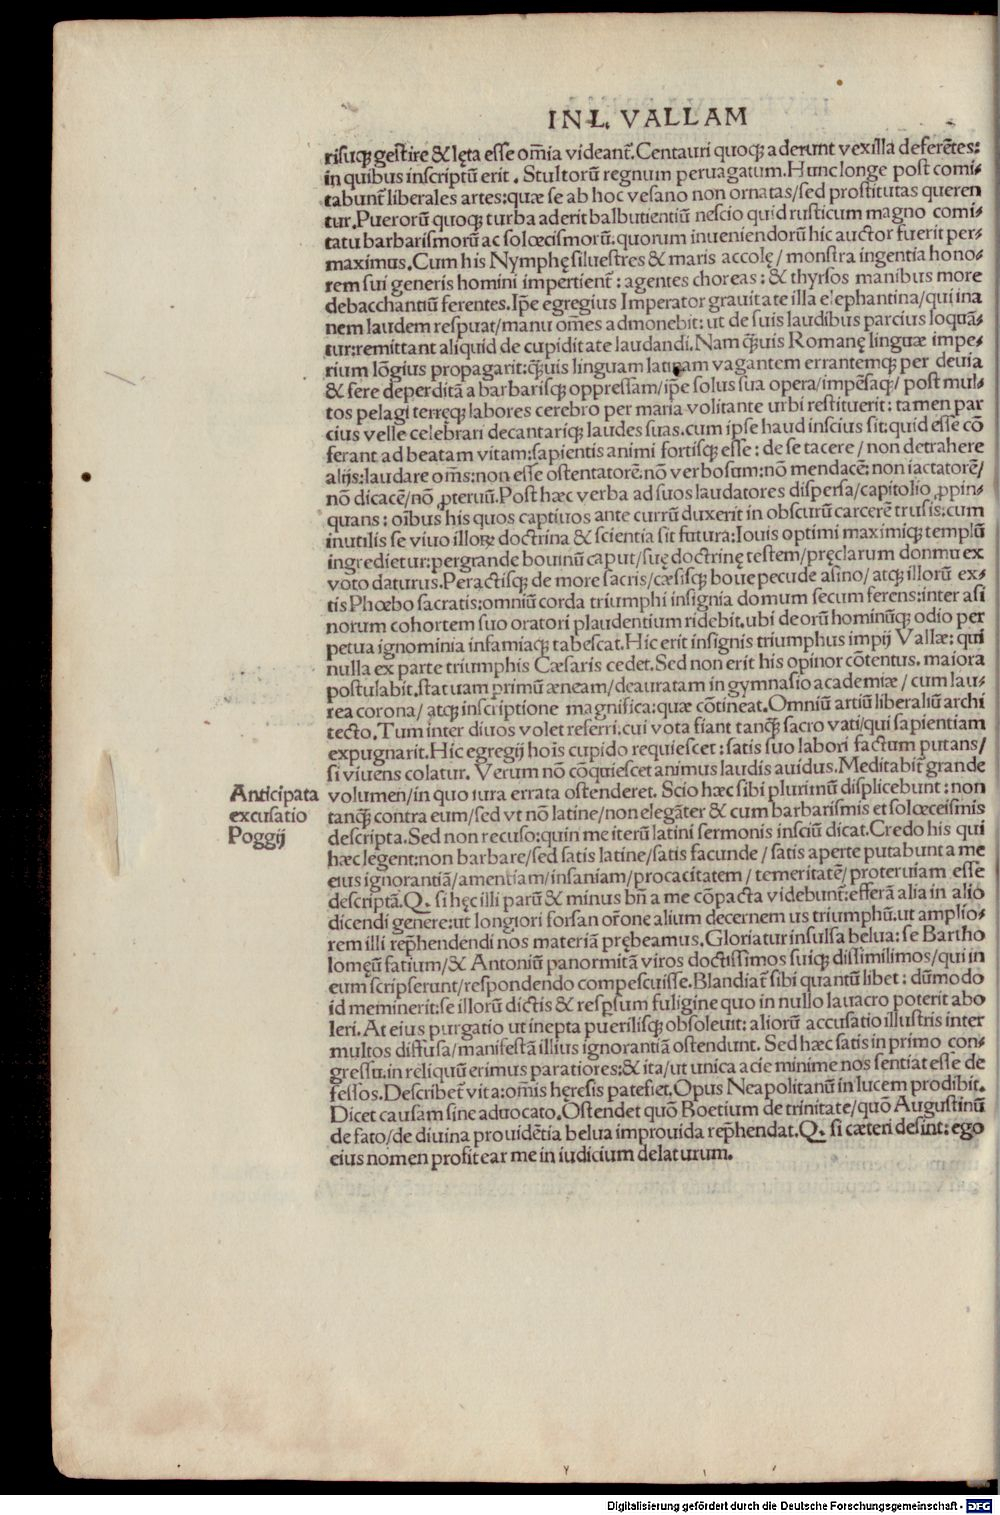 IN L. VALLAM
risuq; gestire & lęta esse om̄ia videant̃. Centauri quoq; aderunt vexilla deferẽtes:
in quibus inscriptū erit . Stultorū regnum peruagatum. Hunc longe post comi⸗
tabunt̃ liberales artes: quæ se ab hoc vesano non ornatas/sed prostitutas queren
tur. Puerorū quoq; turba aderit balbutientiū nescio quid rusticum magno comi⸗
tatu barbarismorū ac solœcismorū: quorum inueniendorū hic auctor fuerit per⸗
maximus. Cum his Nymphę siluestres & maris accolę/ monstra ingentia hono⸗
rem sui generis homini impertient̃: agentes choreas: & thyrsos manibus more
debacchantiū ferentes. Ip̄e egregius Imperator grauitate illa elephantina/qui ina
nem laudem respuat/manu om̄es admonebit: ut de suis laudibus parcius loquā⸗
tur: remittant aliquid de cupiditate laudandi. Nam q̃uis Romanę linguæ impe⸗
rium lōgius propagarit: q̃uis linguam latinam vagantem errantemq; per deuia
& fere deperditā a barbarisq; oppressam/ip̄e solus sua opera/impēsaq;/ post mul⸗
tos pelagi terręq; labores cerebro per maria volitante urbi restituerit: tamen par
cius velle celebrari decantariq; laudes suas. cum ipse haud inscius sit: quid esse cō
ferant ad beatam vitam: sapientis animi fortisq; esse: de se tacere/ non detrahere
alijs: laudare om̄s: non esse ostentatorē: nō verbosum: nō mendacē: non iactatorē/
nō dicacē/nō ꝓteruū. Post hæc verba ad suos laudatores dispersa/capitolio ꝓpin⸗
quans: oībus his quos captiuos ante currū duxerit in obscurū carcerē trusis: cum
inutilis se viuo illoꝝ doctrina & scientia sit futura: Iouis optimi maximiq; templū
ingredietur: pergrande bouinū caput/suę doctrinę testem/pręclarum donmu ex
voto daturus. Peractisq; de more sacris/cæsisq; boue pecude asino/ atq; illorū ex⸗
tis Phœbo sacratis: omniū corda triumphi insignia domum secum ferens: inter asi
norum cohortem suo oratori plaudentium ridebit. ubi deorū hominūq; odio per
petua ignominia infamiaq; tabescat. Hic erit insignis triumphus impij Vallæ: qui
nulla ex parte triumphis Cæsaris cedet. Sed non erit his opinor cōtentus. maiora
postulabit. statuam primū æneam/deauratam in gymnasio academiæ/ cum lau⸗
rea corona/ atq; inscriptione magnifica: quæ cōtineat. Omniū artiū liberaliū archi
tecto. Tum inter diuos volet referri: cui vota fiant tanq̃ sacro vati/qui sapientiam
expugnarit. Hic egregij hoīs cupido requiescet: satis suo labori factum putans/
si viuens colatur. Verum nō cōquiescet animus laudis auidus. Meditabit̃ grande
volumen/in quo iura errata ostenderet. Scio hæc sibi plurimū displicebunt: non
tanq̃ contra eum/sed vt nō latine/non elegāter & cum barbarismis et solœceismis
descripta. Sed non recuso: quin me iterū latini sermonis insciū dicat. Credo his qui
hæc legent: non barbare/sed satis latine/satis facunde/ satis aperte putabunt a me
eius ignorantiā/amentiam/insaniam/procacitatem/ temeritatē/proteruiam esse
descriptā. Q. si hęc illi parū & minus bn̄ a me cōpacta videbunt: efferā alia in alio
dicendi genere: ut longiori forsan or̄one alium decernem us triumphū. ut amplio⸗
rem illi rep̄hendendi nos materiā prębeamus. Gloriatur insulsa belua: se Bartho
lomęū fatium/& Antoniū panormitā viros doctissimos suiq; dissimilimos/qui in
eum scripserunt/respondendo compescuisse. Blandiat̃ sibi quantū libet: dūmodo
id meminerit: se illorū dictis & respsum fuligine quo in nullo lauacro poterit abo
leri. At eius purgatio ut inepta puerilisq; obsoleuit: aliorū accusatio illustris inter
multos diffusa/manifestā illius ignorantiā ostendunt. Sed hæc satis in primo con⸗
gressu: in reliquū erimus paratiores: & ita/ut unica acie minime nos sentiat esse de
fessos. Describet̃ vita: om̄is hęresis patefiet. Opus Neapolitanū in lucem prodibit.
Dicet causam sine aduocato. Ostendet quō Boetium de trinitate/quō Augustinū
de fato/de diuina prouidētia belua improuida rep̄hendat. Q. si cæteri desint: ego
eius nomen profitear me in iudicium delaturum.
Anticipata
excusatio
Poggij
Digitalisierung gefördert durch die Deutsche Forschungsgemeinschaft - DFG